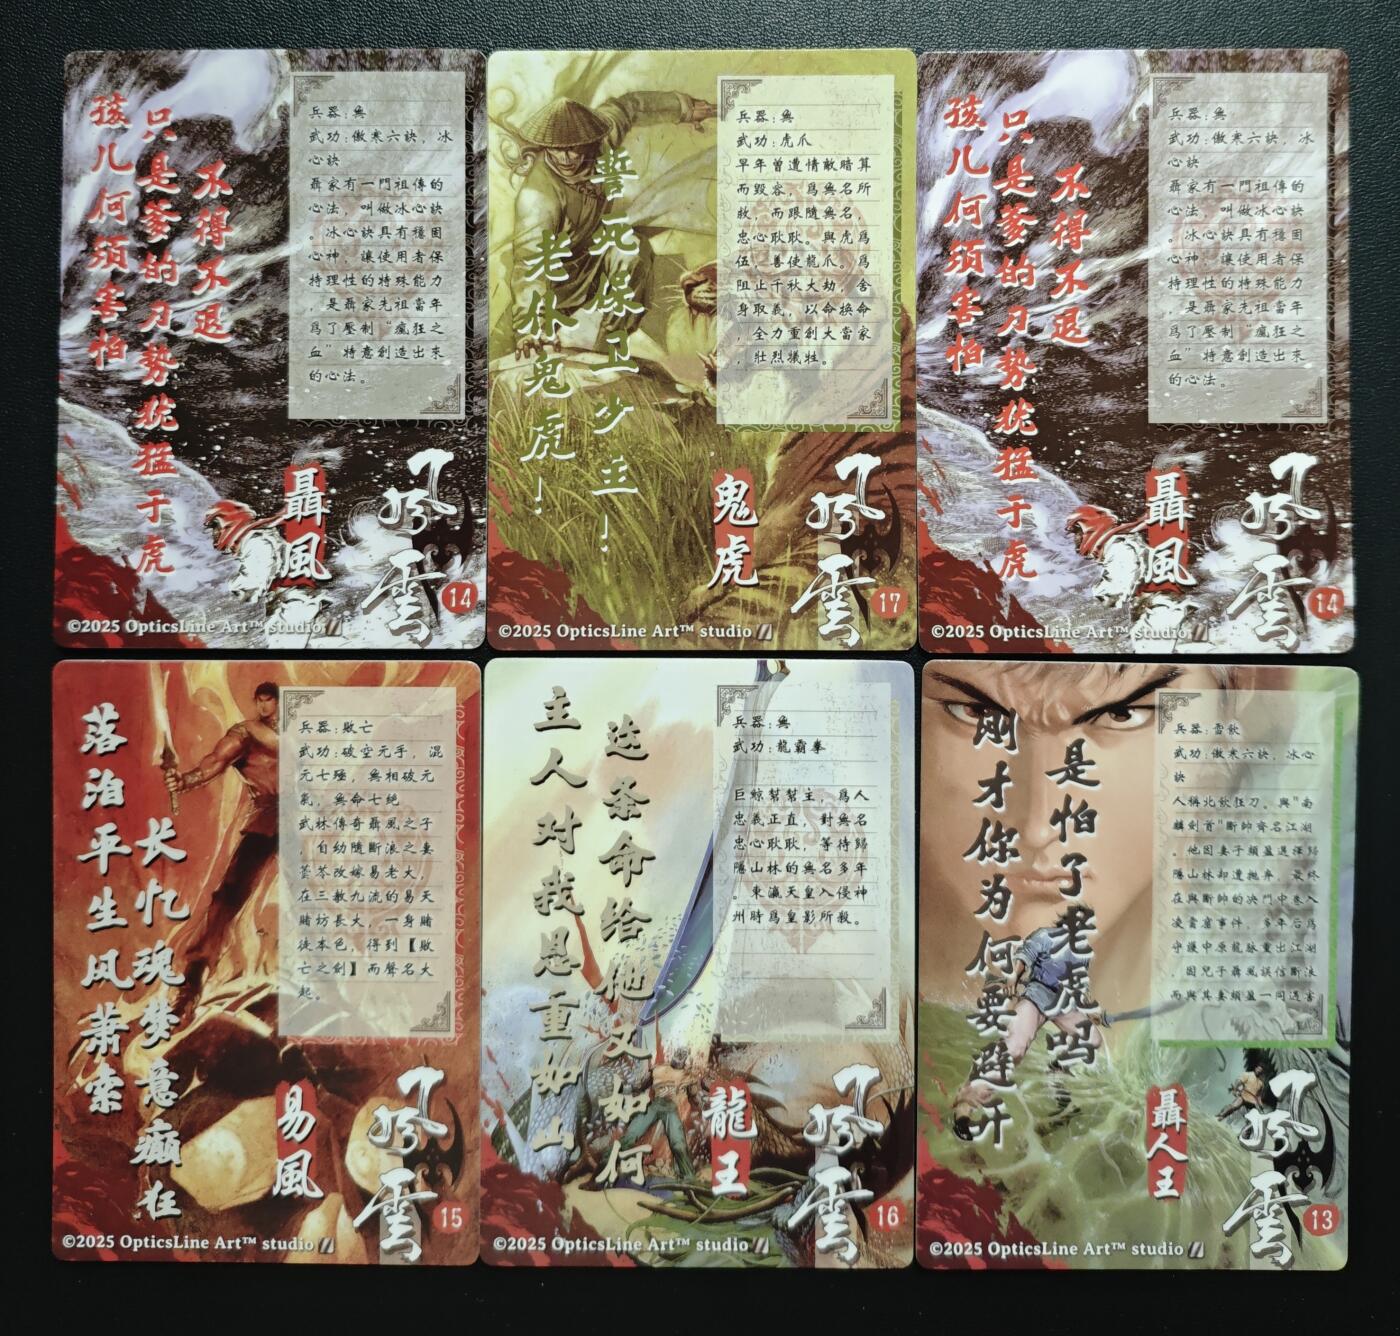 孩儿何须害怕
只是爹的刀势犹猛于虎
不得不退
兵器：無
武功：傲寒六訣，冰
心訣
聶家有一門祖傳的
心法，叫做冰心訣
。冰心訣具有穩固
心神，讓使用者保
持理性的特殊能力
，是聶家先祖當年
爲了壓制“瘋狂之
血”特意創造出來
的心法。
聶風
風雲
14
©2025 OpticsLine Art™ studio
誓死保卫少主！
老仆鬼虎！
兵器：無
武功：虎爪
早年曾遭情敵暗算
而毀容，爲無名所
救，而跟隨無名，
忠心耿耿。與虎爲
伍，善使龍爪。爲
阻止千秋大劫，舍
身取義，以命換命
，全力重創大當家
，壯烈犧牲。
鬼虎
風雲
17
©2025 OpticsLine Art™ studio
孩儿何须害怕
只是爹的刀势犹猛于虎
不得不退
兵器：無
武功：傲寒六訣，冰
心訣
聶家有一門祖傳的
心法，叫做冰心訣
。冰心訣具有穩固
心神，讓使用者保
持理性的特殊能力
，是聶家先祖當年
爲了壓制“瘋狂之
血”特意創造出來
的心法。
聶風
風雲
14
©2025 OpticsLine Art™ studio
落泊平生风萧索
长忆魂梦意癫狂
兵器：敗亡
武功：破空元手，混
元七殛，無相破元
氣，無命七絕
武林傳奇聶風之子
，自幼隨斷浪之妻
蕓芩改嫁易老大，
在三教九流的易天
賭坊長大，一身賭
徒本色，得到【敗
亡之劍】而聲名大
起。
易風
風雲
15
©2025 OpticsLine Art™ studio
主人对我恩重如山
这条命给他又如何
兵器：無
武功：龍霸拳
巨鯨幫幫主，爲人
忠義正直，對無名
忠心耿耿，等待歸
隱山林的無名多年
。東瀛天皇入侵神
州時爲皇影所殺。
龍王
風雲
16
©2025 OpticsLine Art™ studio
刚才你为何要避开
是怕了老虎吗
兵器：雪飲
武功：傲寒六訣，冰心
訣
人稱北飲狂刀。與"南
麟劍首"斷帥齊名江湖
。他因妻子顏盈選擇歸
隱山林却遭拋弃，最終
在與斷帥的决鬥中卷入
凌雲窟事件，多年后爲
守護中原龍脉重出江湖
，因兒子聶風誤信斷浪
而與其妻顏盈一同遇害
聶人王
風雲
13
©2025 OpticsLine Art™ studio